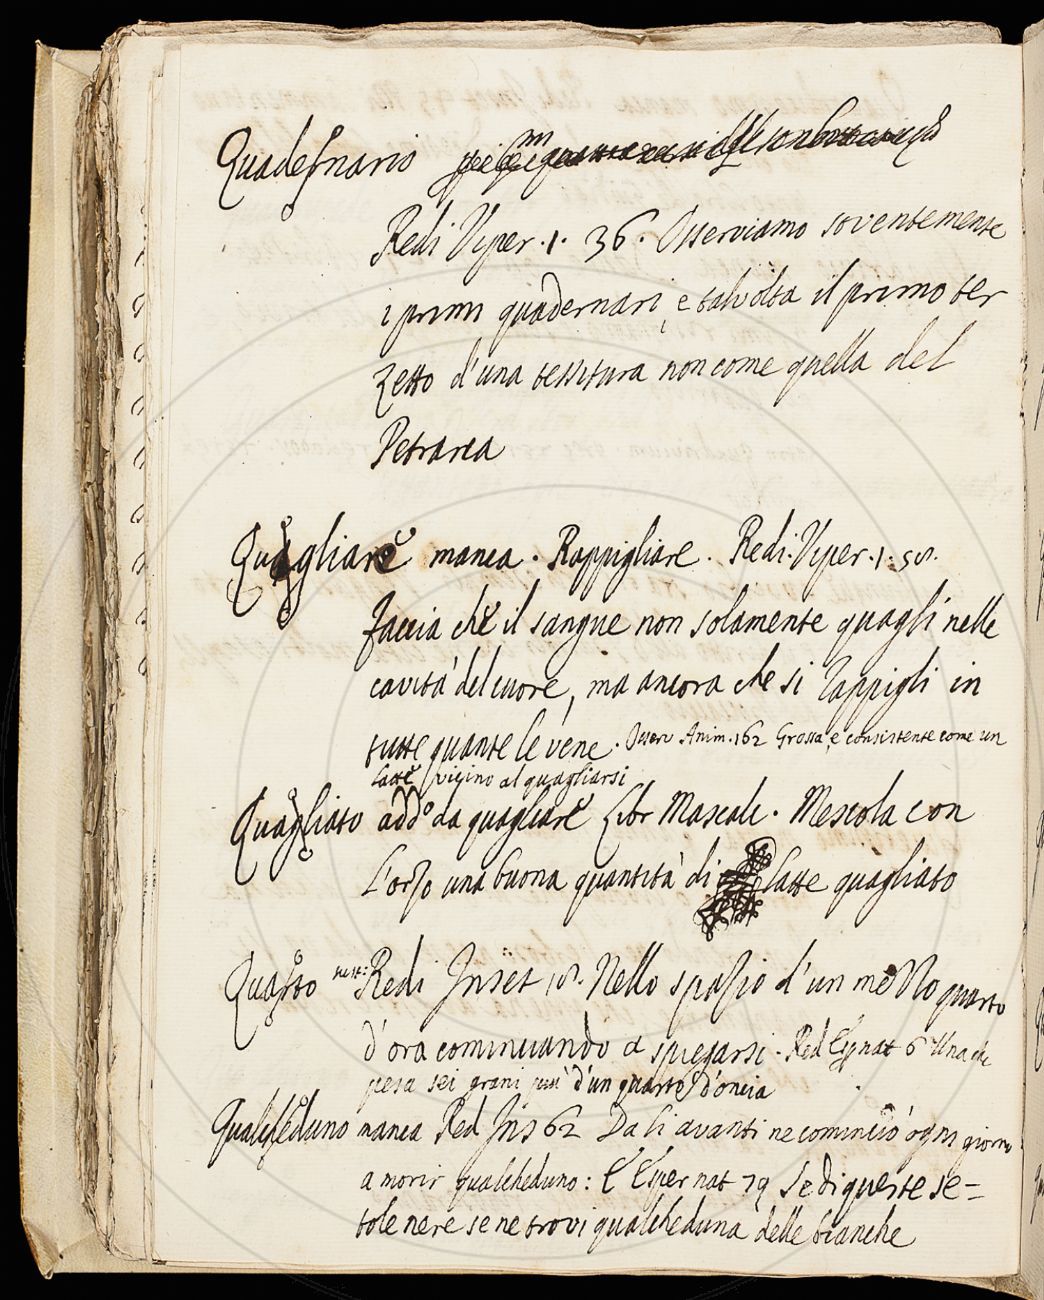 Quadernario
Redi Viper. 1. 36. Osserviamo soventemente
i primi quadernari, e talvolta il primo ter
zetto d'una tessitura non come quella del
Petrarca
Quagliare manca. Rappigliare. Redi. Viper. 1. 58.
Faccia che il sangue non solamente quagli nelle
cavità del cuore, ma ancora che si rappigli in
tutte quante le vene. Osserv Anim. 162 Grossa, e consistente come un
latte vicino al quagliarsi
Quagliato add° da quagliare Libr Mascalc. Mescola con
L'orzo una buona quantità di latte quagliato
Quarto sust: Redi Inset 18. Nello spazio d'un mezzo quarto
d'ora cominciando a spiegarsi. Red Esp nat 6 Una che
pesa sei grani più d'un quarto d'oncia
Qualcheduno manca Red Ins 62 Da lì avanti ne cominciò ogni giorno
a morir qualcheduno: E Esper nat 79 Se di queste se=
tole nere se ne trovi qualcheduna delle bianche